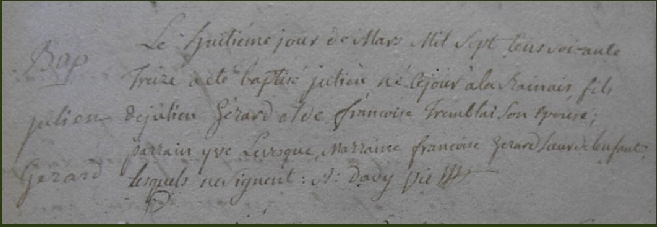 Bap
julien
Gérard
Le huitiéme jour de Mars Mil Sept Cens soixante
Treize a eté baptisé julien né ce jour a la Rainais fils
de julien Gérard et de françoise Tremblai son epouse;
parrain yve Levesque, Marraine francoise Gerard soeur de l'enfant,
lesquels ne signent: Davy